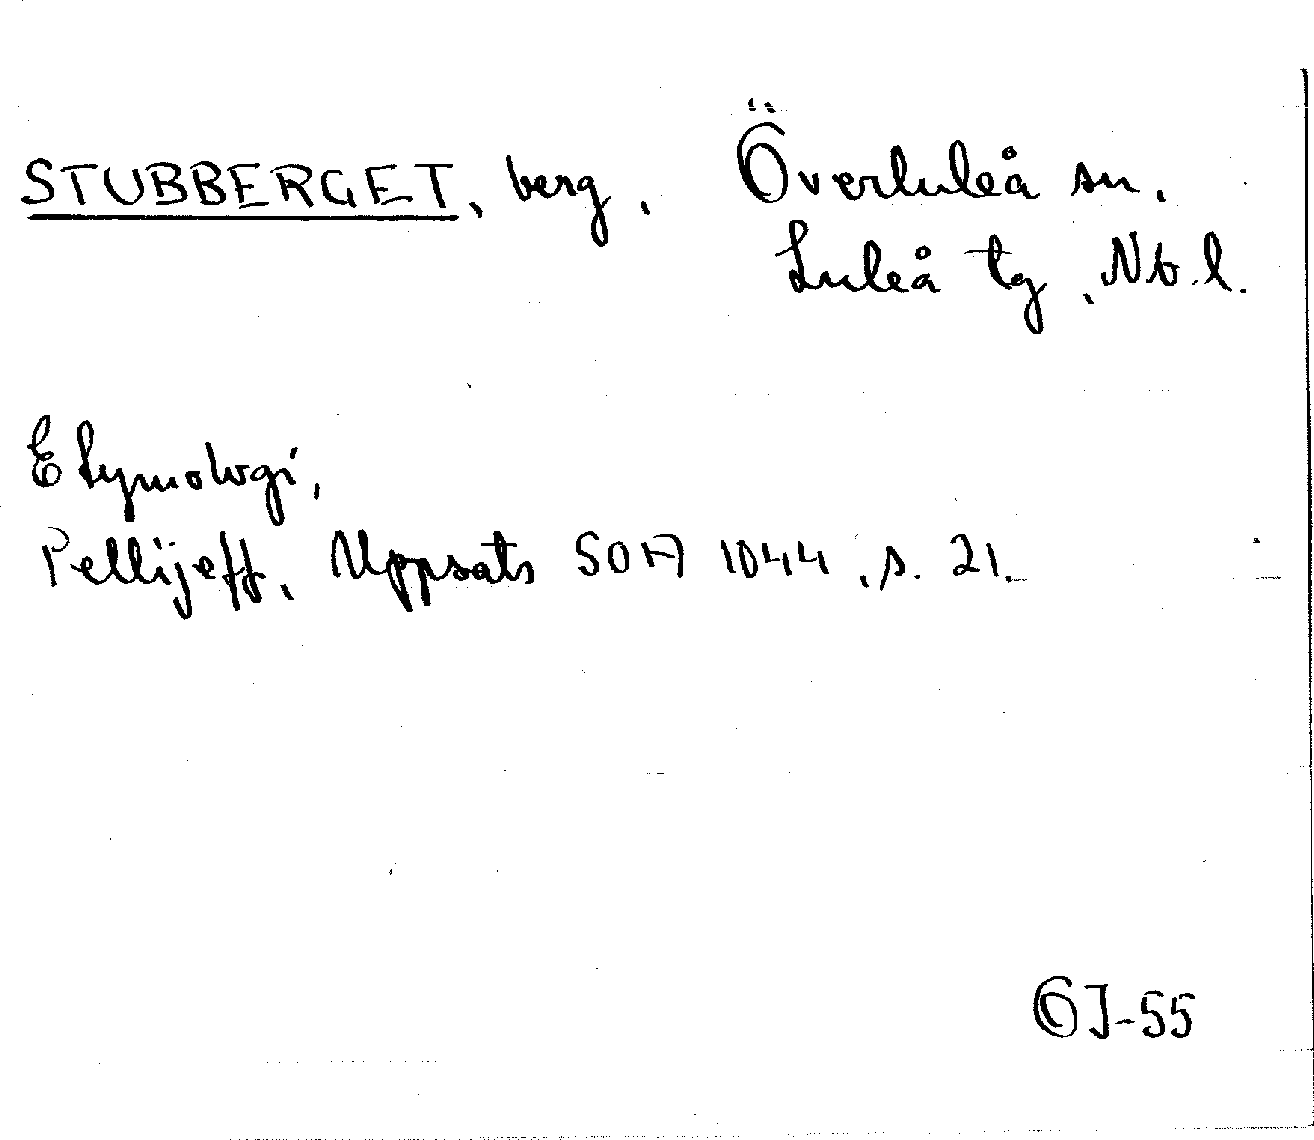 STUBBERGET, berg, Överluleå sn.
Luleå tg, Nb.l.
Etymologi,
Pellijeff, Uppsats SOFA 1044, s. 21.
J-55